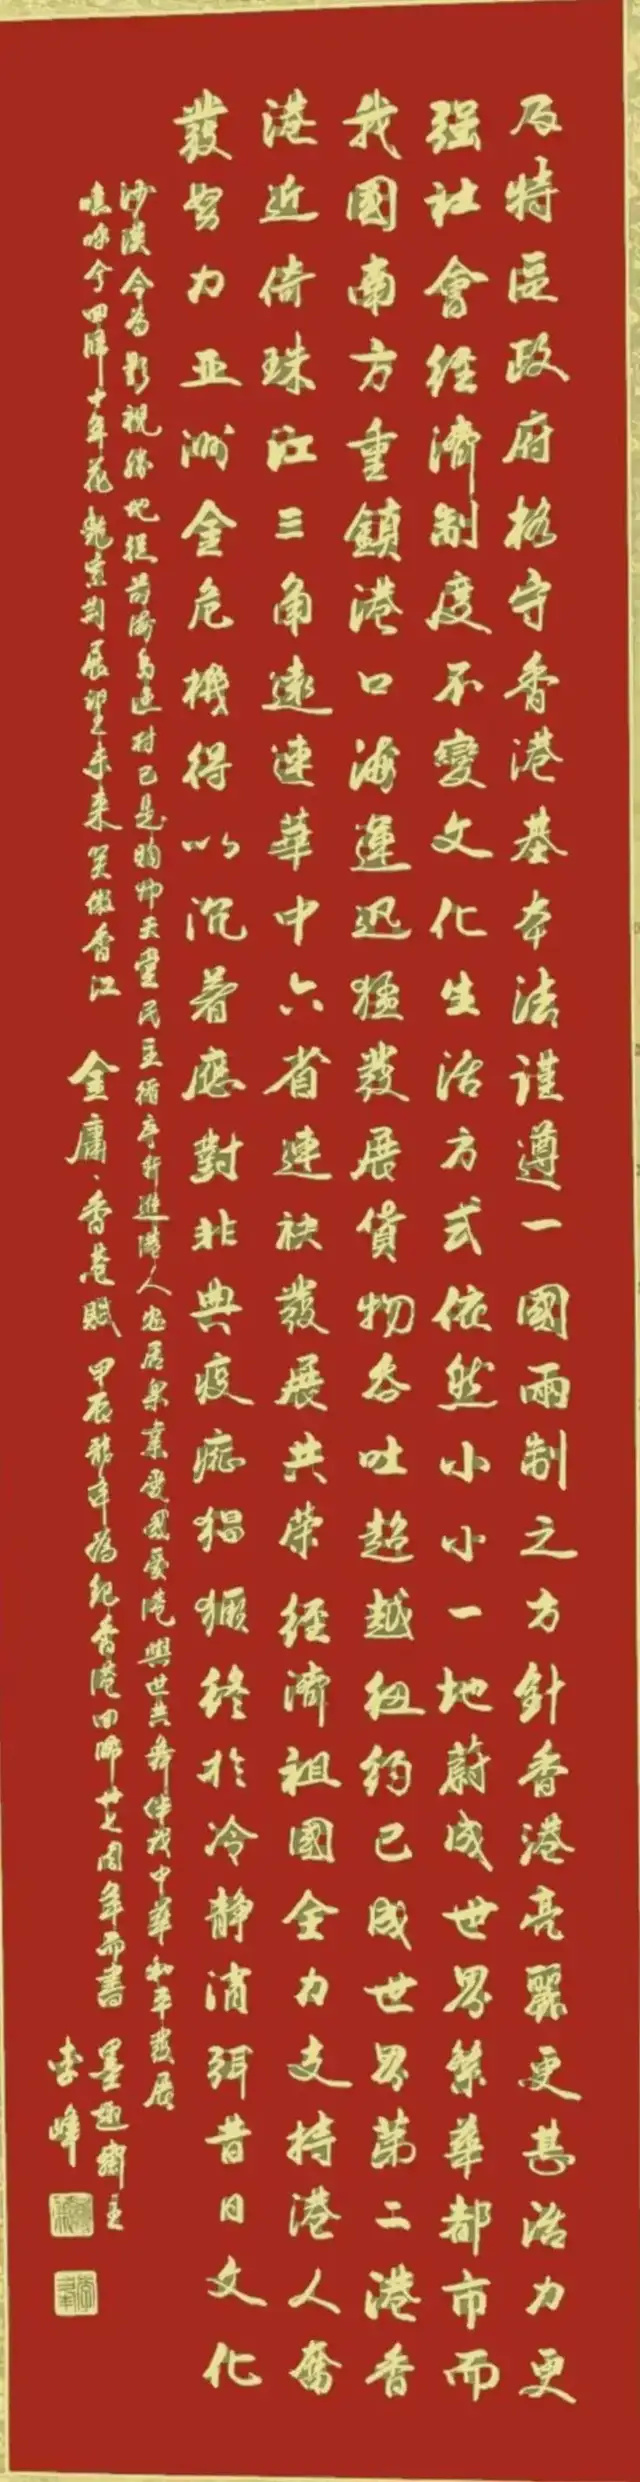 及特區政府格守香港基本法謹遵一國兩制之方針香港亮麗更甚活力更
强社會經濟制度不變文化生活方式依然小小一地蔚成世界繁華都市而
我國南方重鎮港口海運迅猛發展貨物吞吐超越紐約已成世界第二港香
港近倚珠江三角遠連華中六省連袂發展共榮經濟祖國全力支持港人奮
發努力亚洲金危機得以沉着應對非典疫症猖獗終於冷靜消弭昔日文化
沙漠今為影視勝地從前海島边村已是购物天堂民主循序行進港人安居樂業愛國愛港與世共舞伴我中華和平發展
嗟呼今回歸十年花艷素荊展望未來笑傲香江 金庸、香港賦 甲辰龍年為紀香港回歸廿七周年而書 墨趣齋主
李峰